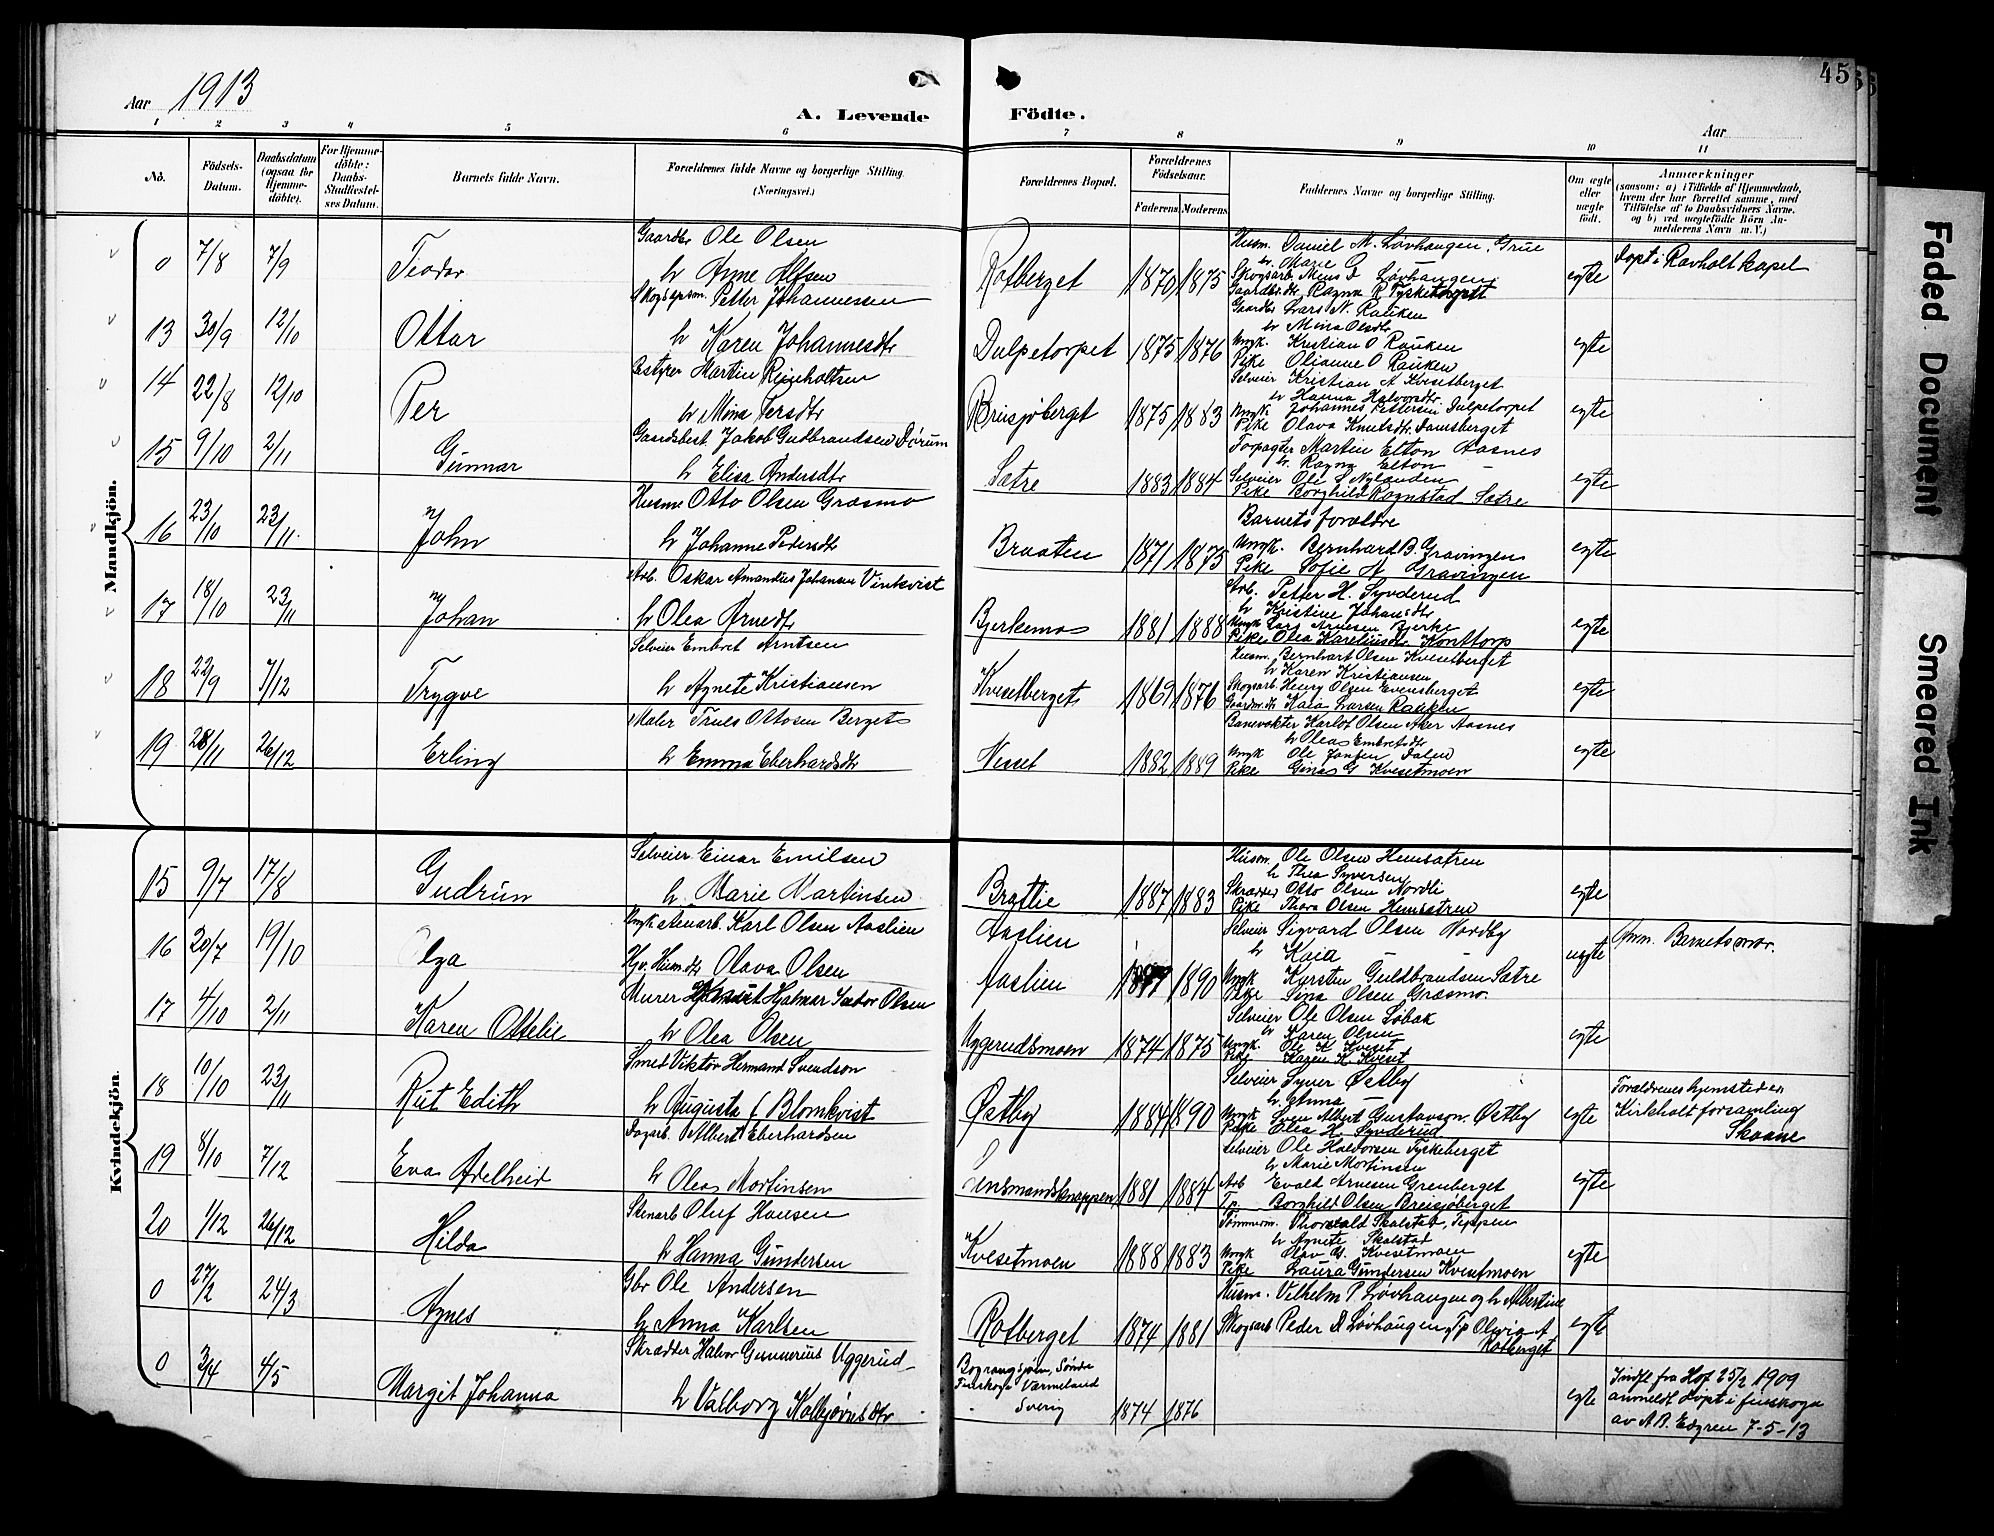 45
Aar 1913
A. Levende Födte.
Aar
1 2 3 4 5 6 7 8 9 10 11
No.
Födsels-Datum.
Daabsdatum (ogsaa for Hjemme-döbte).
For Hjemme-döbte: Daabs-Stadfæstel-ses Datum.
Barnets fulde Navn.
Forældrenes fulde Navne og borgerlige Stilling. (Næringsvei.)
Forældrenes Bopæl.
Forældrenes Födselsaar.
Faderens Moderens
Faddernes Navne og borgerlige Stilling.
Om ægte eller uægte födt.
Anmærkninger
(saasom: a) i Tilfælde af Hjemmedaab, hvem der har forrettet samme, med Tilföielse af to Daabsvidners Navne, og b) ved uægtefödte Börn An-melderens Navn m. V.)
Mandkjön.
0 7/8 7/9 Teodor
Gaardbr Ole Olsen
h Anne Olsen
Rotberget 1870 1875
Husm. Daniel M. Løvhaugen, Grue
h. Marie O
Skogsarb. Mens D Løvhaugen
Gaardbr.dtr Ragna R Tysketorpet
egte
Døpt i Ravholt kapel
13 30/9 12/10 Ottar
Skogsopsm. Petter Johannessen
h Karen Johannesdtr
Dulpetorpet 1875 1876
Gaardbr Lars N. Rauken
h Mina Olsdtr
Ungk. Kristian O Rauken
Pike Olianne O Rauken
egte
14 22/8 12/10 Per
Bestyrer Martin Reinholtsen
h Mina Persdtr
Breisjøberget 1875 1883
Selveier Kristian A Kvesetberget
h Hanna Halvorsdtr
Ungk. Johannes Pettersen Dulpetorpet
Pike Olava Knutsdtr. Damsberget
egte
15 9/10 2/11 Gunnar
Gaardsbest. Jakob Gudbrandsen Dørum
h Elisa Andersdtr
Sætre 1883 1884
Forpagter Martin Elton Aasnes
h. Ragna Elton
Selveier Ole S Nylanden
Pike Borghild Rognstad Sætre
egte
16 23/10 23/11 John
Husm Otto Olsen Græsmo
h Johanne Pedersdtr
Braaten 1871 1875
Barnets forældre
Ungk. Bernhard B. Gravingen
Pike Sofie A Gravingen
egte
17 18/10 23/11 Johan
Arb. Oskar Amandus Johansen Vinkvist
h Olea Arnedtr
Bjerkemo 1881 1888
Arb. Petter H. Synderud
h Kristine Johansdtr
Ungk Lars Arnesen Bjerke
Pike Olea Kareliusdtr Konttorp
egte
18 22/9 7/12 Trygve
Selveier Embret Arntsen
h Agnete Kristiansen
Kvesetberget 1869 1876
Husm. Bernhart Olsen Kvesetberget
h Karen Kristiansen
Skogsarb Henry Olsen Evensberget
Gaardm.dtr Kaia Larsen Rauken
egte
19 28/11 26/12 Erling
Maler Truls Ottosen Berget
h Emma Eberhardsdtr
Nesset 1882 1889
Banevokter Karlot Olsen Aker Aasnes
h Oleas Embretsdtr
Ungk Ole Jansen Dalen
Pike Gina G Kvesetmoen
egte
Kvindekjön.
15 9/7 17/8 Gudrun
Selveier Einar Emilsen
h. Marie Martinsen
Bratlie 1887 1883
Husm. Ole Olsen Hemsætren
h Thea Syversen
Skrædder Otto Olsen Nordli
Pike Thora Olsen Hemsætren
egte
16 20/7 19/10 Olga
Ungk. stenarb. Karl Olsen Aaslien
Pg. Husm.dtr Olava Olsen
Aaslien
Aaslien 1890
Selveier Sigvard Olsen Nordby
h Kaia
Ungk Kyrsten Guldbrandsen Sætre
Pike Sina Olsen Græsmo.
uegte
Anm. Barnets mor.
17 4/10 2/11 Karen Ottelie
Murer Hjalmar Sætor Olsen
h Olea Olsen
Uggerudsmoen 1874 1875
Selveier Ole Olsen Løbak
h Karen Olsen
Ungk. Ole K Kveset
Pike Karen K. Kveset
egte
18 10/10 23/11 Rut Edith
Smed Viktor Hermand Svendson
h Augusta f Blomkvist
Østby 1884 1890
Selveier Syver Østby
h. Anna —
Ungk Sven Albert Gustavson. Østby
Pike Olea H. Synderud
egte
Forældrenes hjemsted er
Kirkholt forsamling
Skaane
19 8/10 7/12 Eva Adelheid
Dagarb. Albert Eberhardsen
h Olea Mortinsen
Lensmandsknappen 1881 1884
Selveier Ole Haldorsen Tyskeberget
h Marie Mortinsen
Arb Evald Arnesen Grenberget
Tp. Borghild Olsen Breisjøberget
egte
20 1/12 26/12 Hilda
Stenarb Oluf Hansen
h Hanna Gundersen
Kvesetmoen 1888 1883
Tømmerm. Thorvald Skalstad, Teppen
h Agnete Skalstad
Ungk Olav G. Kvesetmoen
Pike Laura Gundersen Kvesetmoen
egte
0 27/2 24/3 Agnes
Gbr Ole Andersen
h Anna Karlsen
Rotberget 1874 1881
Husm. Vilhelm P. Løvhaugen og h Albertine
Skogsarb Peder D Løvhaugen, Tp Olivia A
Rotberget
egte
0 3/4 4/5 Margit Johanna
Skrædder Halvor Gunnerius Uggerud
h Valborg Kolbjørnsdtr
Bograngsjøen, Søndre
Finskoga Värmeland
Sverig 1874 1876
egte
Indfl. fra Hof 25/2 1909
anmeldt døpt i finskoga
av A.B. Edgren 7-5-13
Faded Document
Smeared Ink